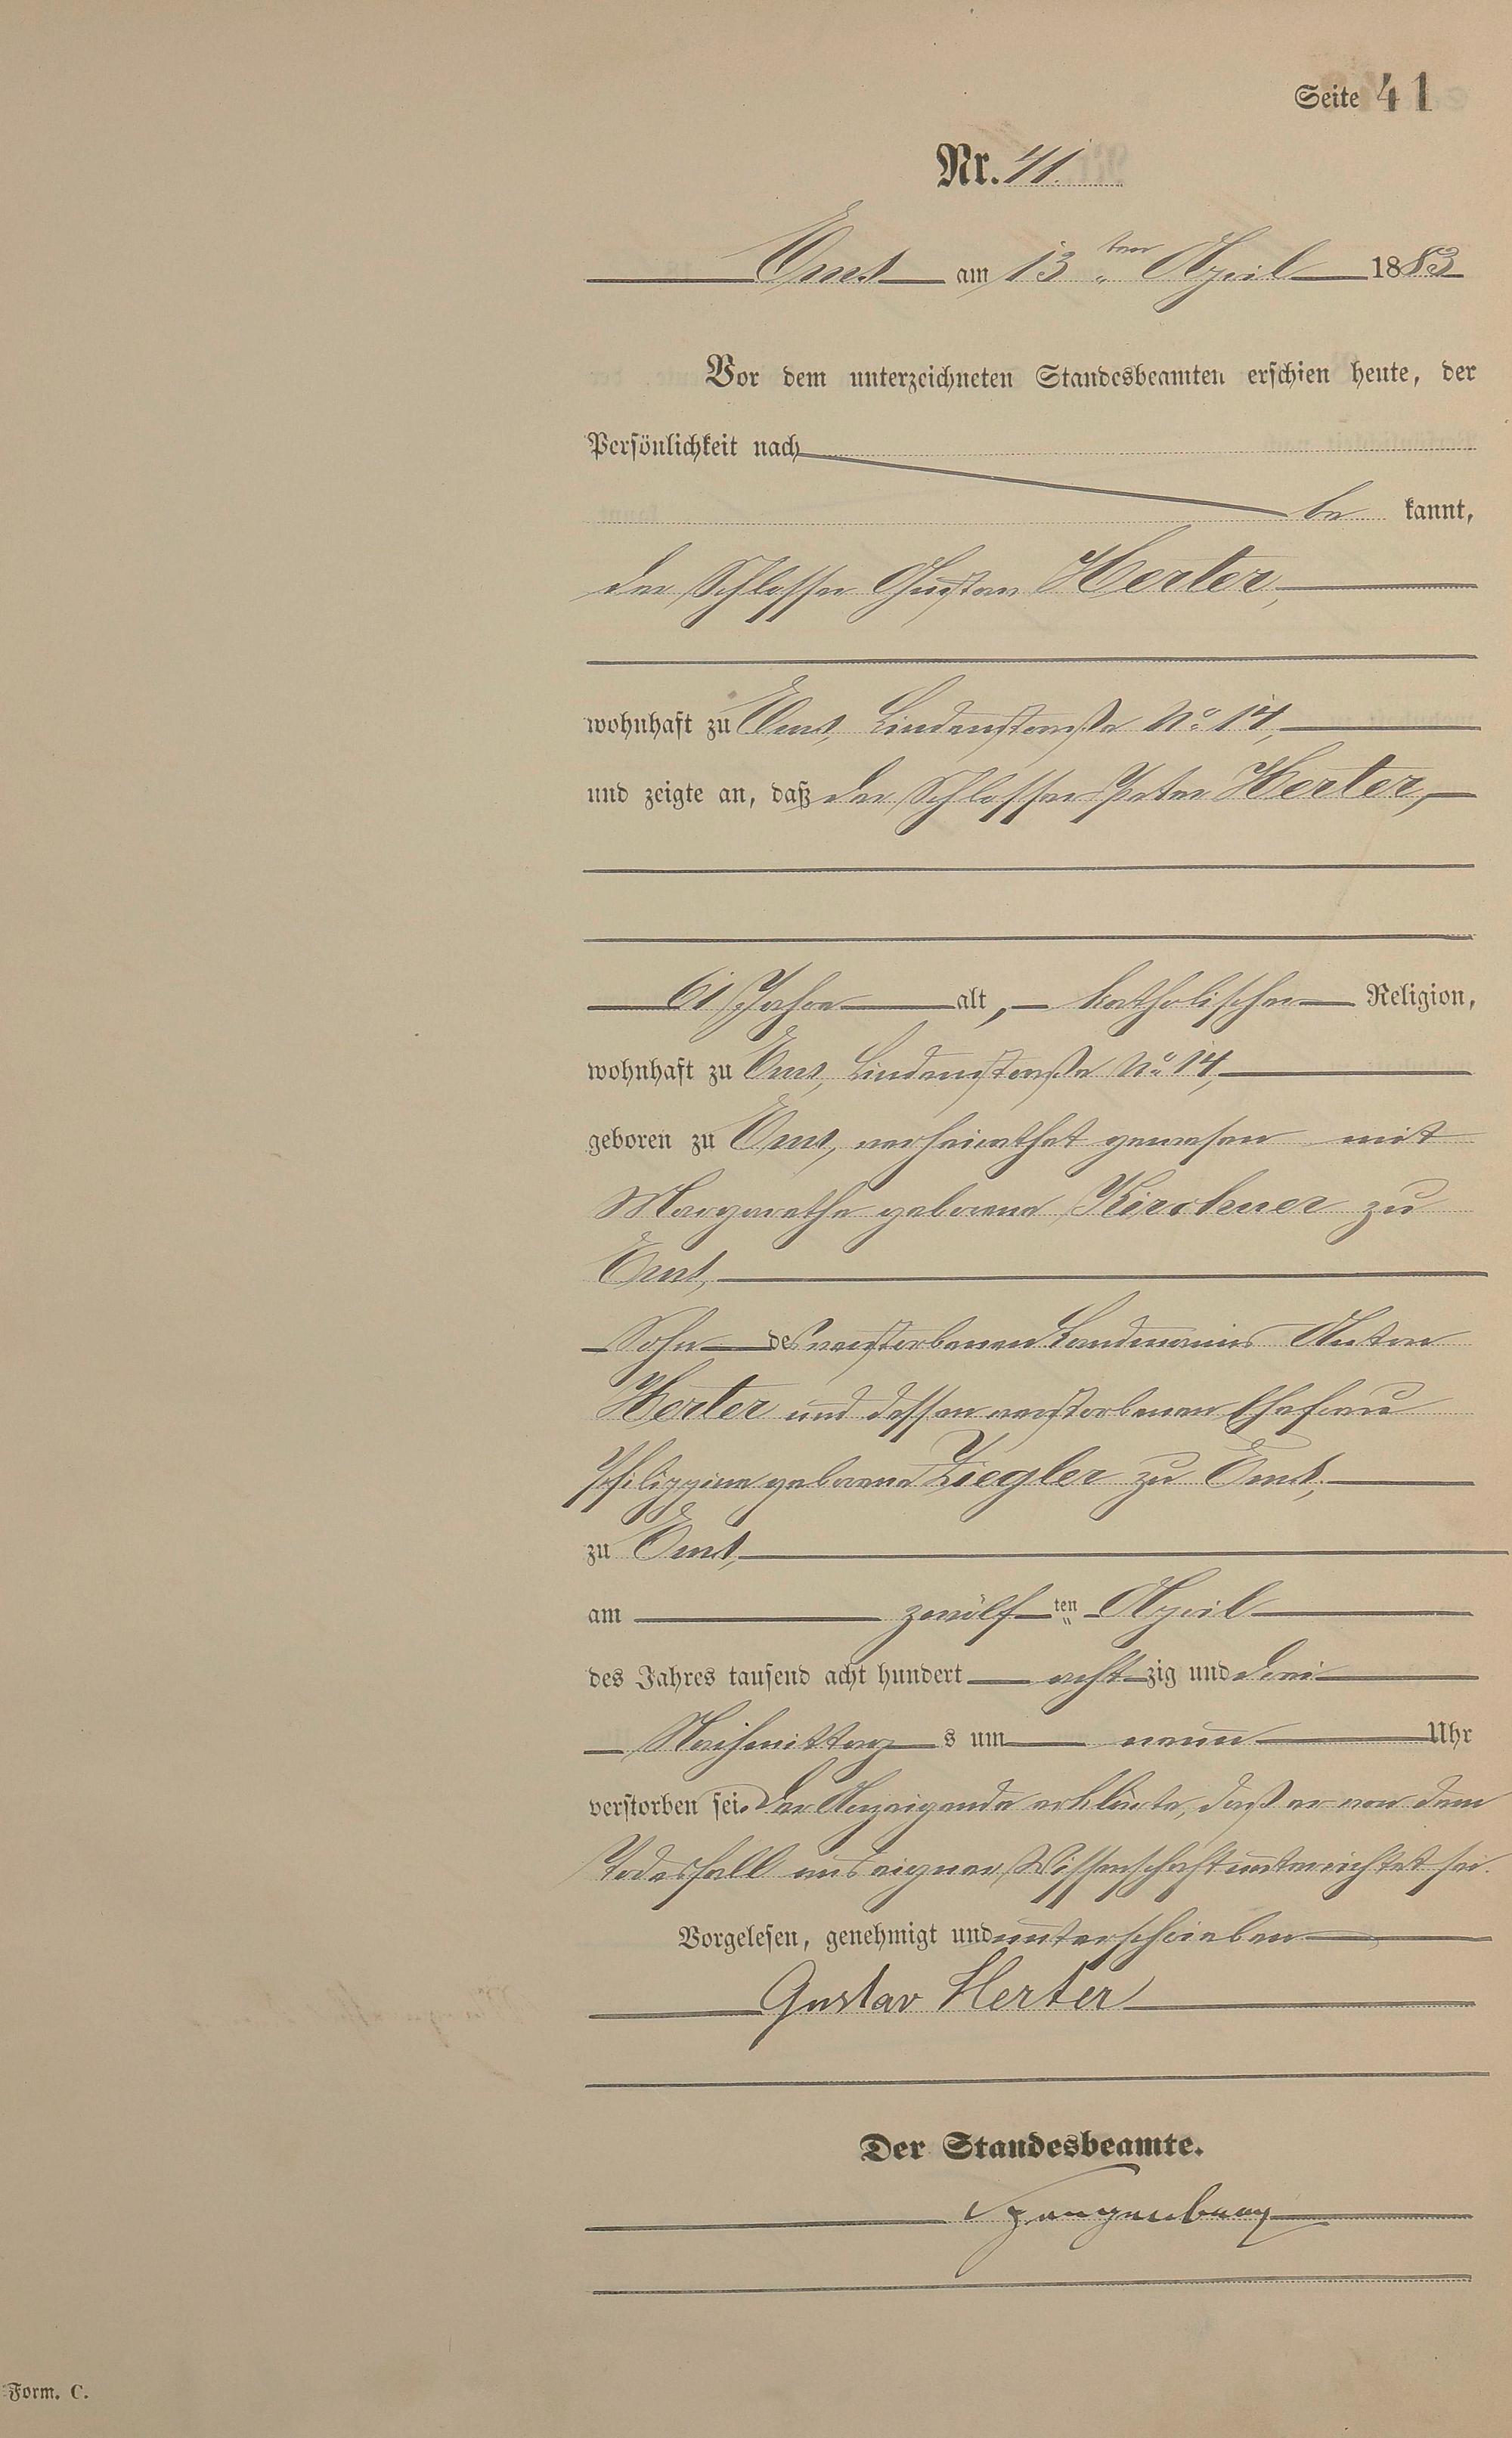 Seite 41
Nr. 41.
Ems am 13ten April 1883
Vor dem unterzeichneten Standesbeamten erschien heute, der
Persönlichkeit nach
be kannt,
der Schlosser Gustav Herter,
wohnhaft zu Ems, Lindenstraße No 14,
und zeigte an, daß der Schlosser Peter Herter,
61 Jahre alt, katholischer Religion,
wohnhaft zu Ems, Lindenstraße No 14,
geboren zu Ems, verheirathet gewesen mit
Margarethe geborene Kirchner zu
Ems,
Sohn des verstorbenen Landmanns Anton
Herter und dessen verstorbenen Ehefrau
Philippine geborene Ziegler zu Ems,
zu Ems,
am zwölf ten April
des Jahres tausend acht hundert acht zig und drei
Nachmittag s um neun Uhr
verstorben sei. Der Anzeigende erklärte, daß er von dem
Todesfall aus eigner Wissenschaft unterrichtet sei.
Vorgelesen, genehmigt und unterschrieben
Gustav Herter
Der Standesbeamte.
Spangenberg
Form. C.